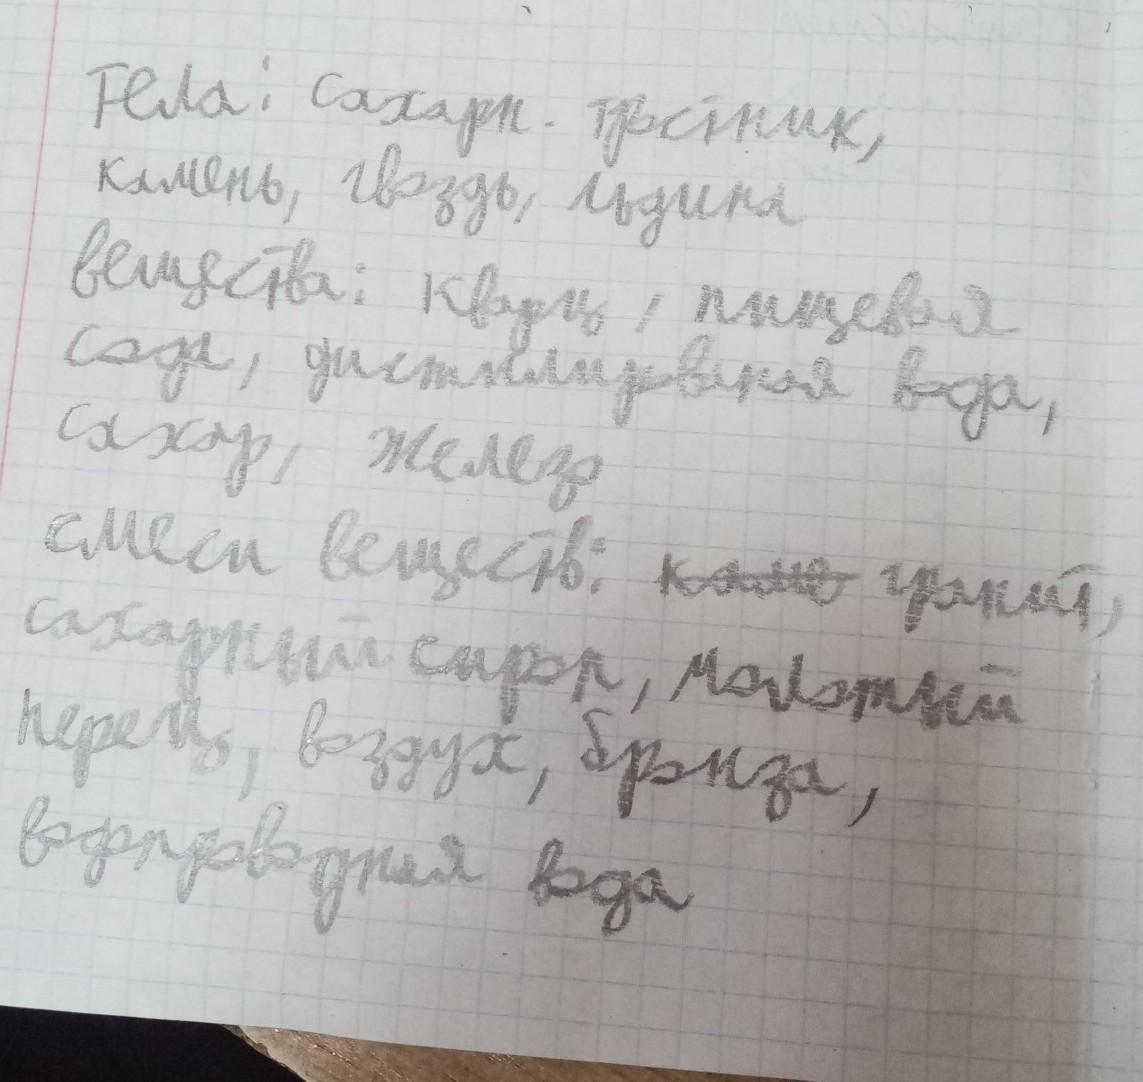 Тела: сахарн. тростник,
камень, гвоздь, льдина
вещества: кварц, пищевая
сода, дистилированая вода,
сахар, железо
смеси веществ: гранит,
сахарный сироп, молотый
перец, воздух, бронза,
водопроводная вода